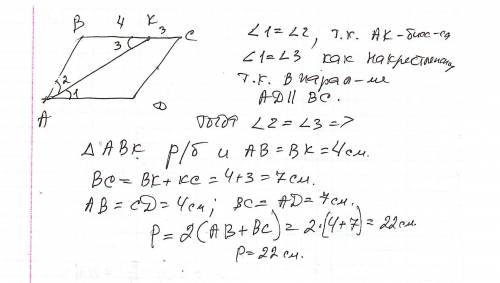 B 4 K 3 C
3
2
1
A D
∠1=∠2, т.к. AK-бисс-са
∠1=∠3 как накрестлежащ
т.к. в парал-ме
AD || BC.
Тогда ∠2=∠3 =>
△ABK р/б и AB=BK=4см.
BC=BK+KC=4+3=7см.
AB=CD=4см; BC=AD=7см.
P=2(AB+BC)=2·(4+7)=22см
P=22см.